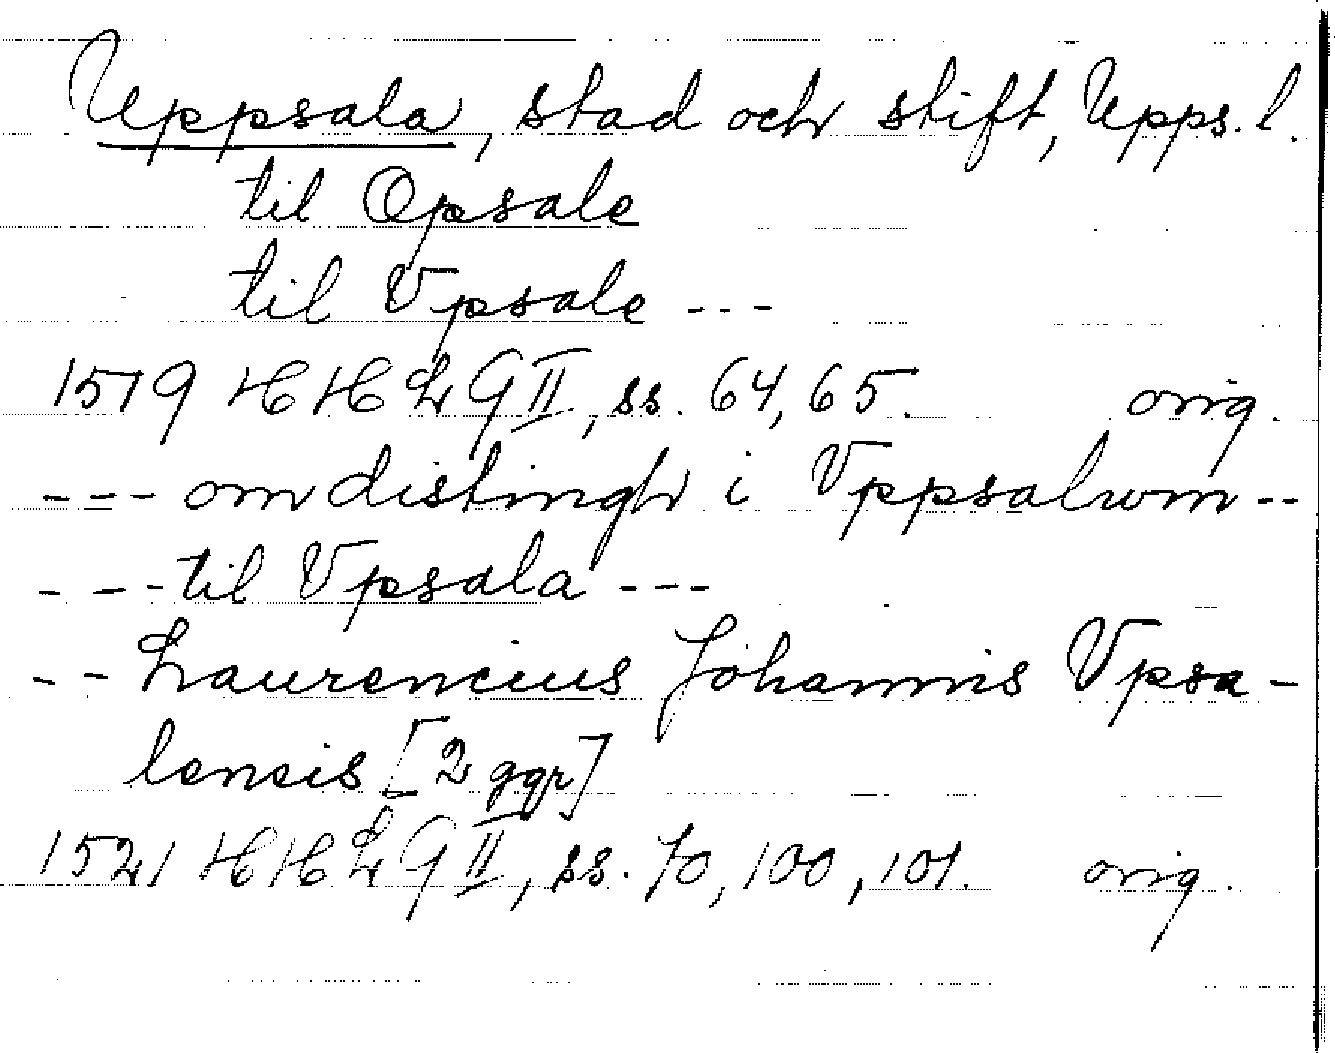 Uppsala, stad och stift, Upps. l.
til Opsale
til Vpsale ---
1519 HHLG II, ss. 64, 65. orig.
--- om distingh i Vppsalwm --
--- til Vpsala ---
-- Laurencius Johannis Vpsa-
lensis [2 ggr]
1521 HHLG II, ss. 70, 100, 101. orig.